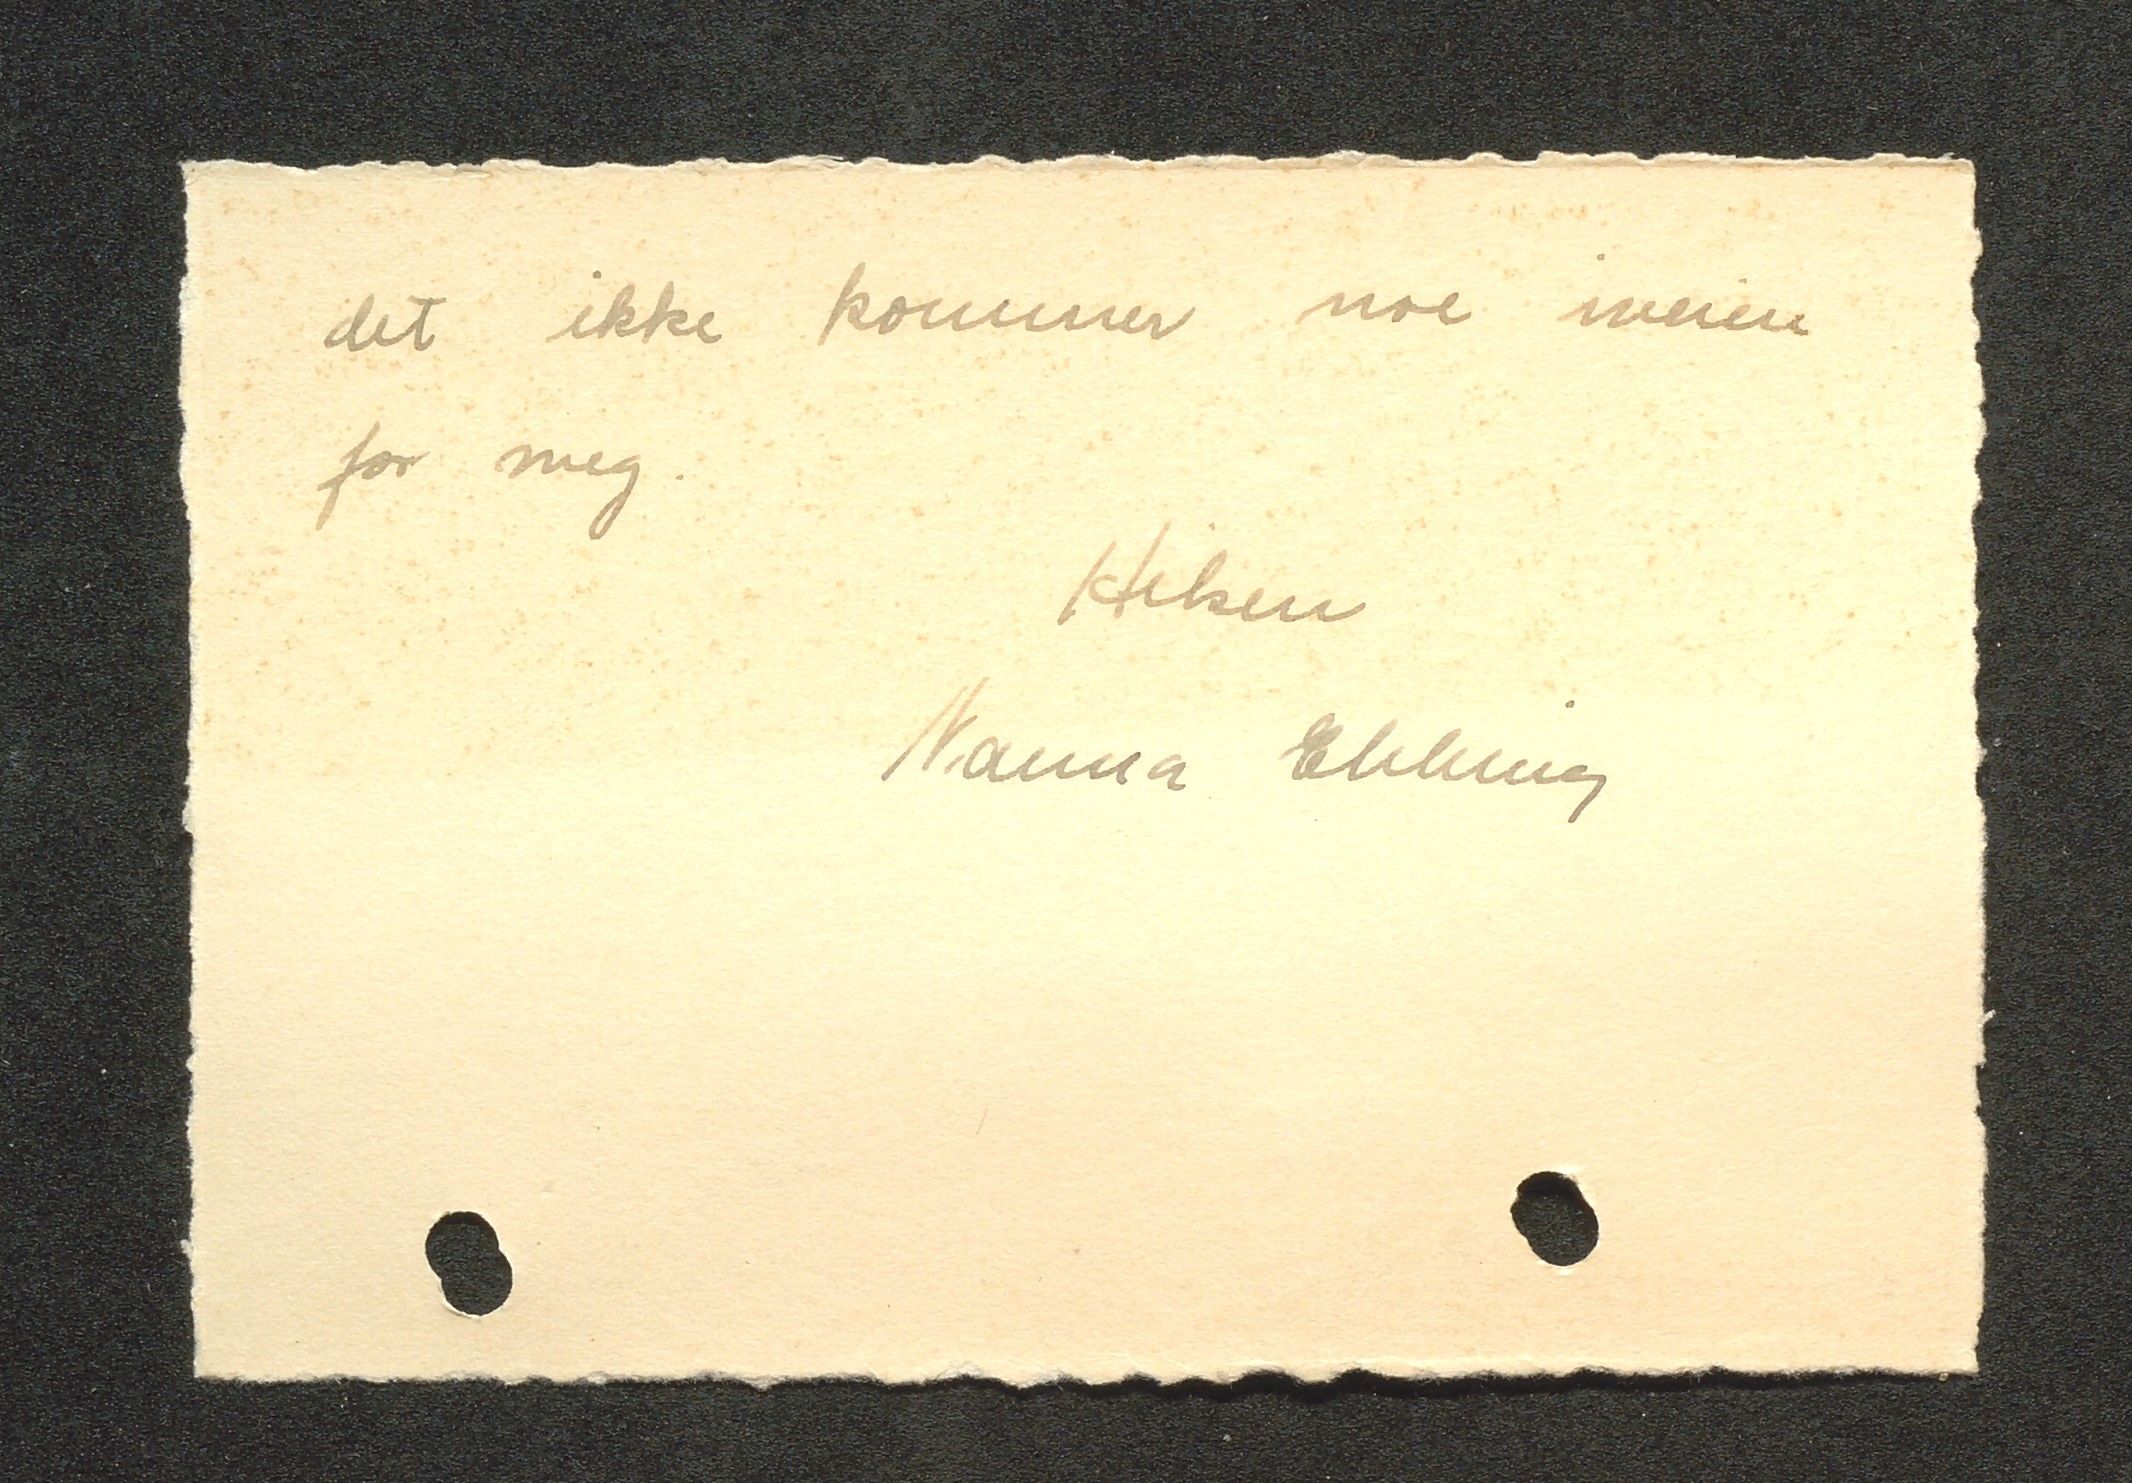 det ikke kommer noe iveien
for meg.
Hilsen
Nanna Ebbing